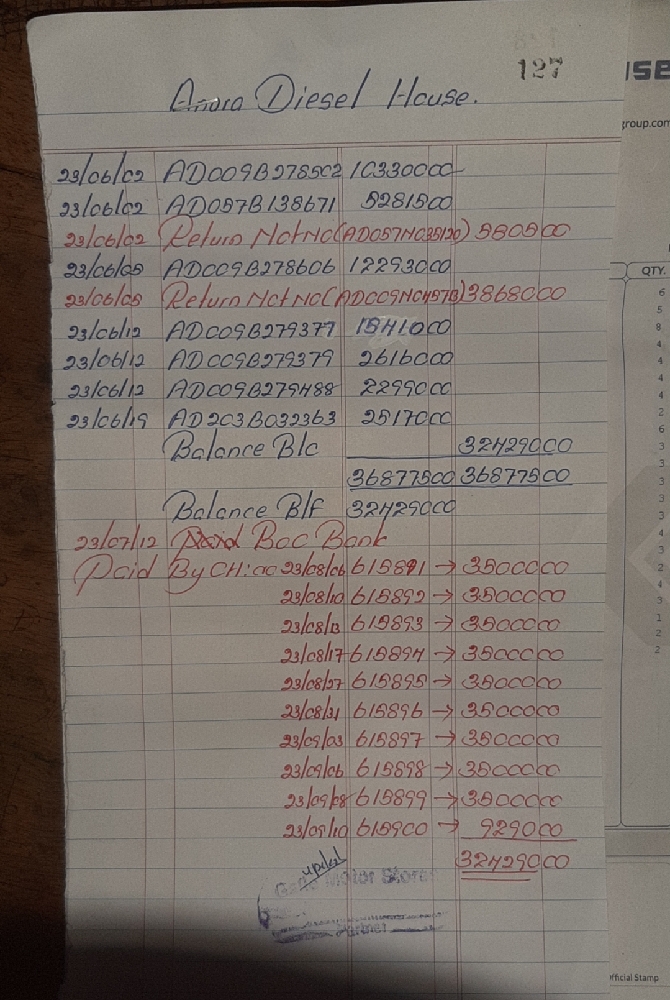 127
Andra Diesel House.
23/06/02 AD009B278502 10330000
23/06/02 AD057B138671 5281500
23/06/02 Return Not No(AD057N035120) 580500
23/06/05 AD009B278606 12293000
23/06/05 Return Not No(AD009N0457B) 3868000
23/06/12 AD009B279377 1541000
23/06/12 AD009B279379 2616000
23/06/12 AD009B279488 2299000
23/06/19 AD203B032363 2517000
Balance B/c 32429000
36877500 36877500
Balance B/F 32429000
23/07/12 Paid Boc Bank
Paid By CH: 23/08/06 615891 → 3500000
23/08/10 615892 → 3500000
23/08/13 615893 → 3500000
23/08/17 615894 → 3500000
23/08/27 615895 → 3500000
23/08/31 615896 → 3500000
23/09/03 615897 → 3500000
23/09/06 615898 → 3500000
23/09/08 615899 → 3500000
23/09/10 615900 → 929000
32429000
Motor Stores
Partner
group.com
QTY.
6
5
8
4
4
4
4
2
6
3
3
3
3
3
4
3
2
4
3
1
2
2
Official Stamp